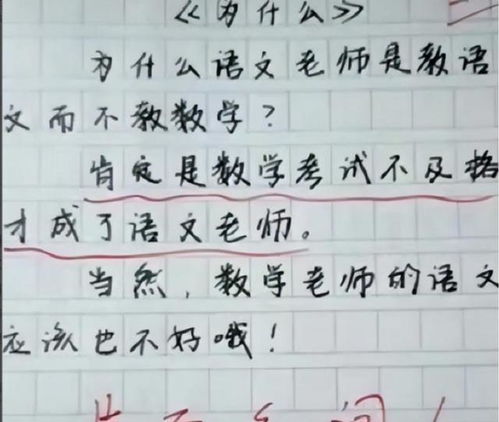 《为什么》
为什么语文老师是教语
文而不教数学？
肯定是数学考试不及格
才成了语文老师。
当然，数学老师的语文
应该也不好哦！